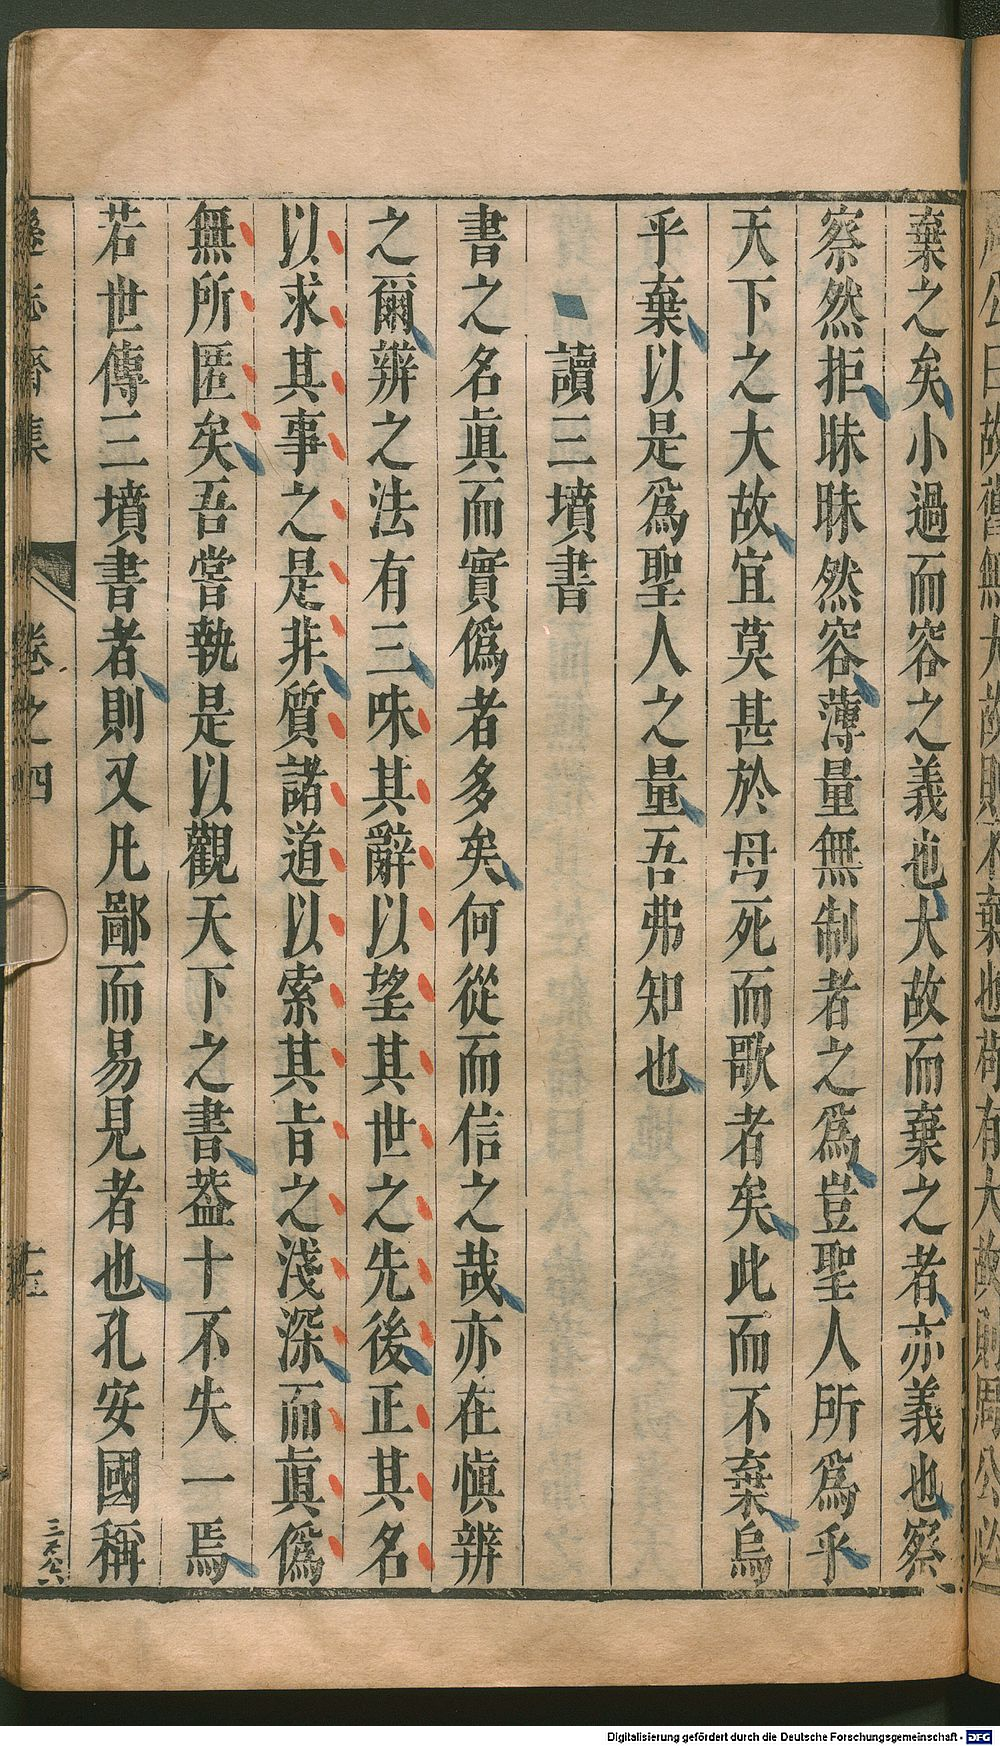 棄之矣小過而容之義也大故而棄之者亦義也察
察然拒昧昧然容薄量無制者之爲豈聖人所爲乎
天下之大故宜莫甚於母死而歌者矣此而不棄烏
乎棄以是爲聖人之量吾弗知也
讀三墳書
書之名眞而實僞者多矣何從而信之哉亦在愼辨
之爾辨之法有三味其辭以望其世之先後正其名
以求其事之是非質諸道以索其旨之淺深而眞僞
無所匿矣吾嘗執是以觀天下之書葢十不失一焉
若世傳三墳書者則又凡鄙而易見者也孔安國稱
遜志齋集 卷之四
Digitalisierung gefördert durch die Deutsche Forschungsgemeinschaft - DFG